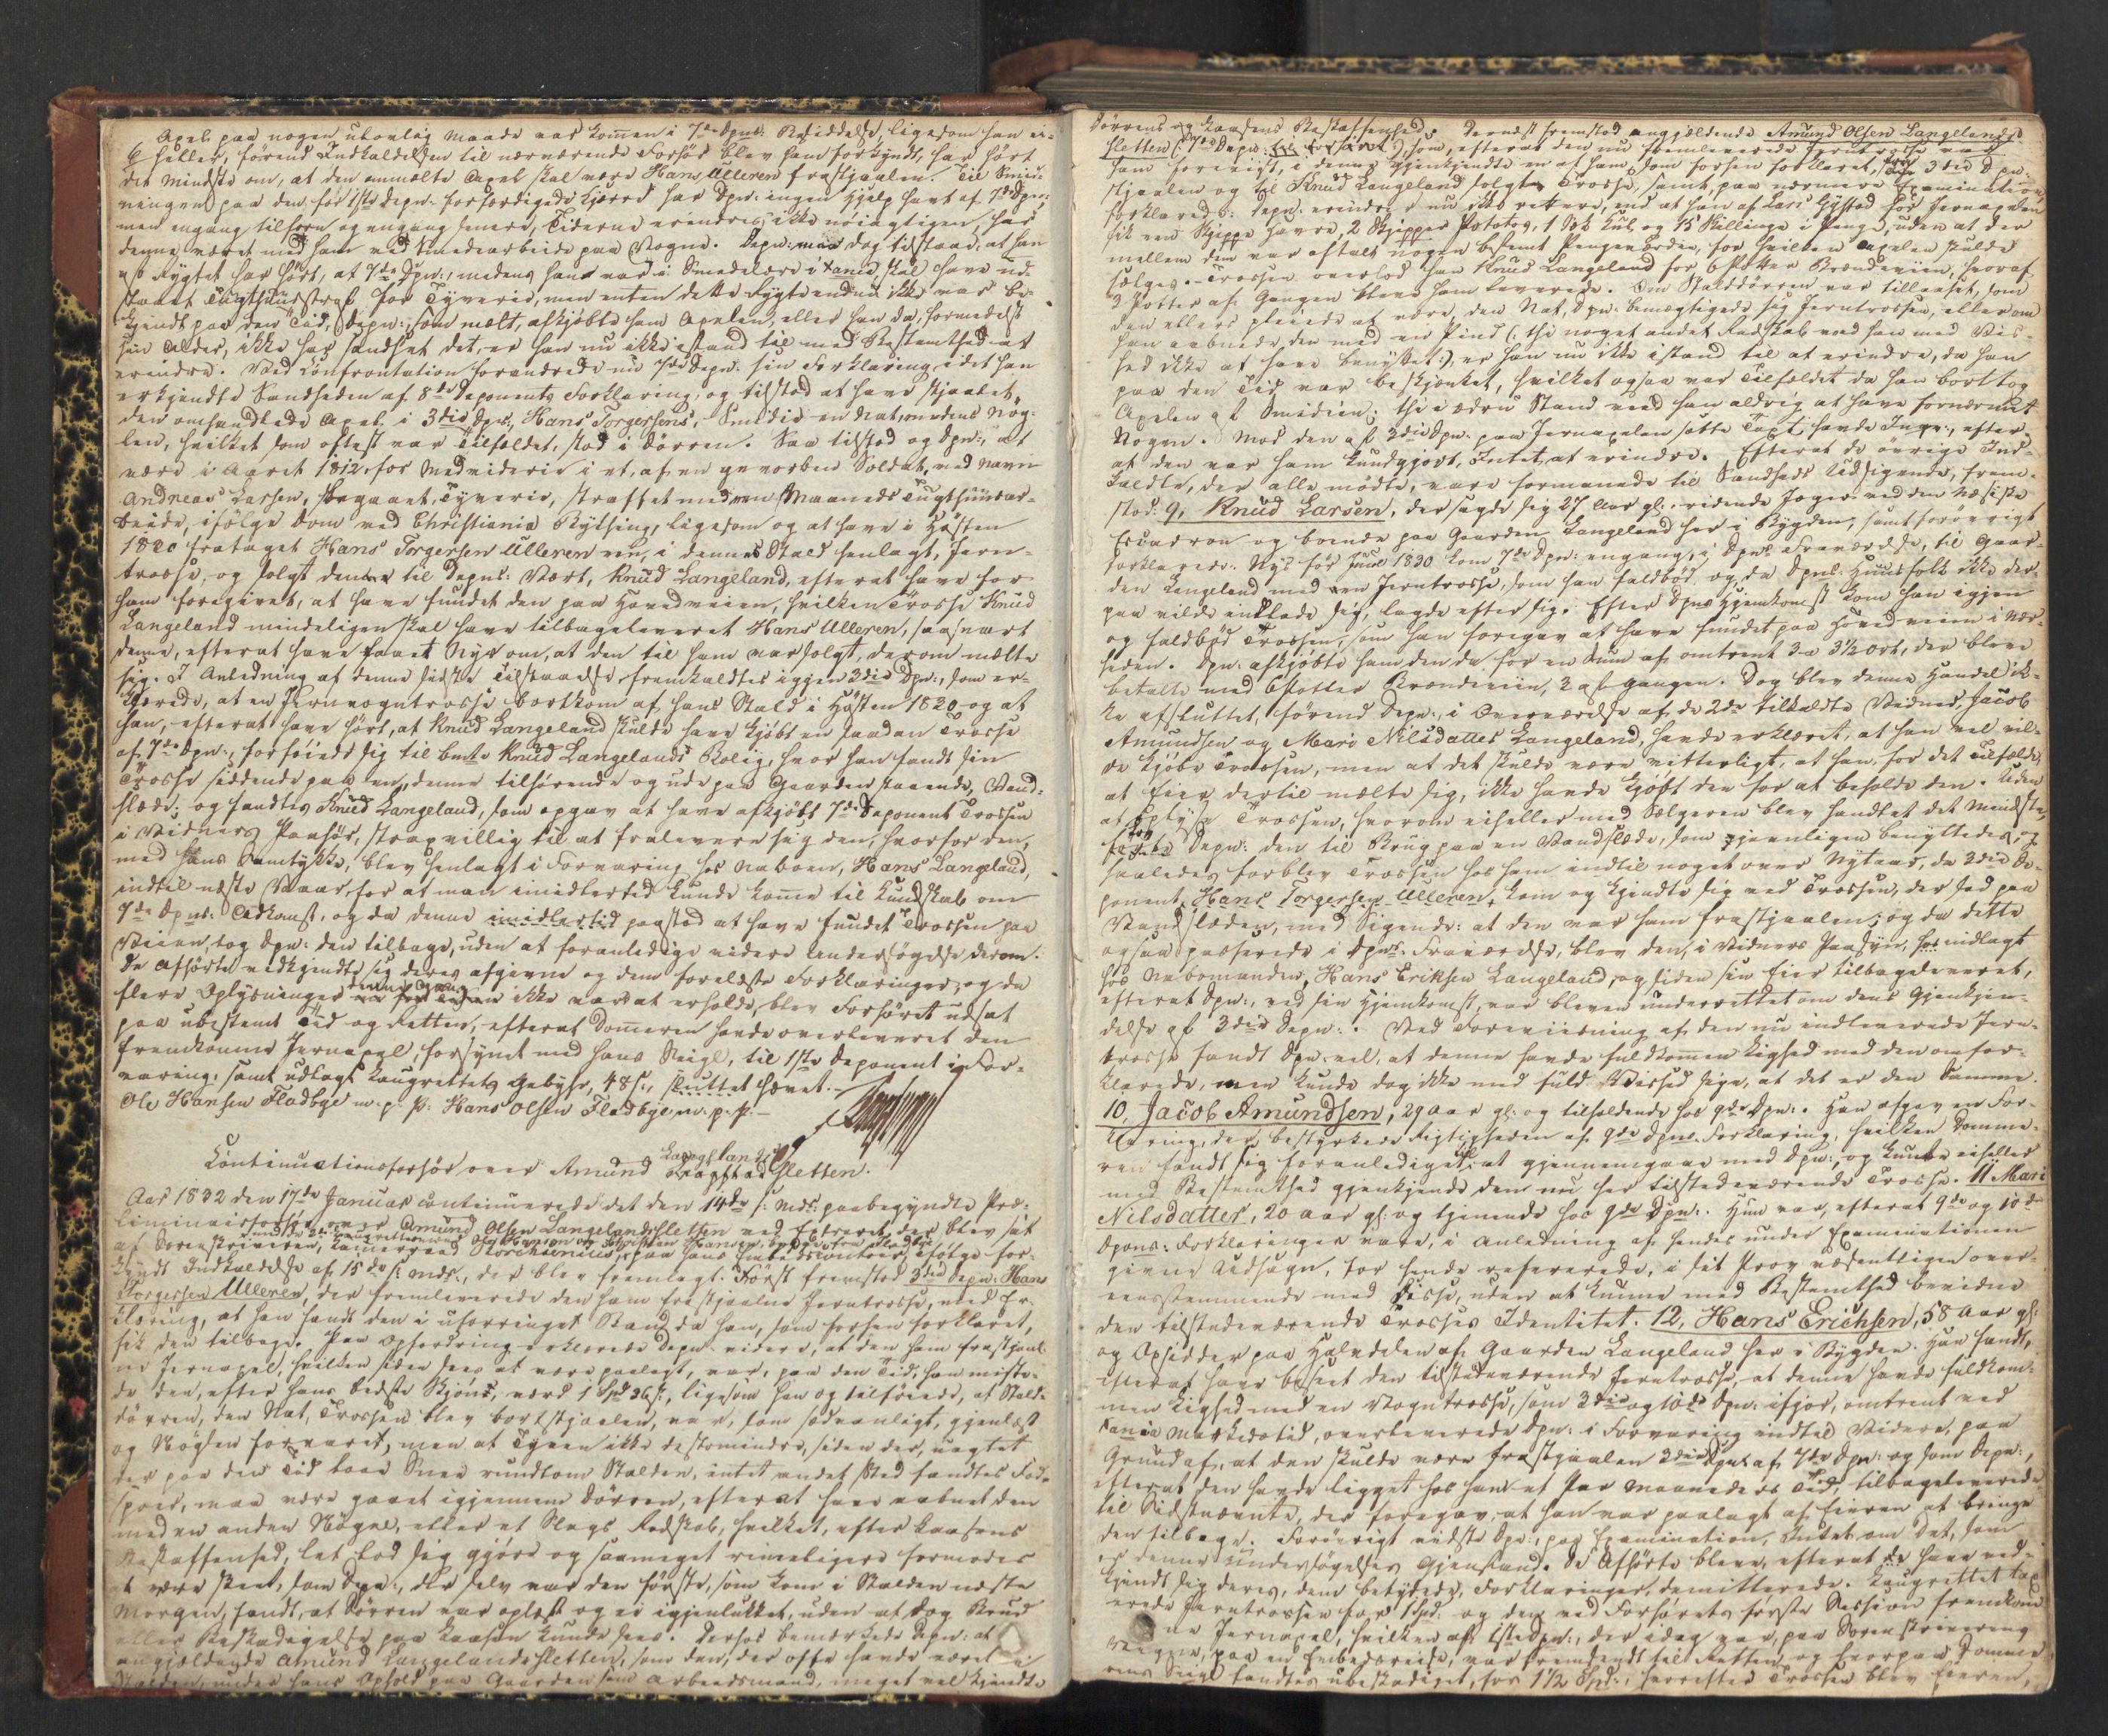 Axel paa nogen ulovlig Maade var kommen i 7de Dpns: Besiddelse, ligesom han ei
heller, førend Indkaldelsen til nærværende Forhør blev ham forkyndt, har hørt
det mindste om, at den anmeldte Axel skal være Hans Ulleren frastjaalen. Til
paa den for 1ste Depn: forfærdigede Kjærre har Dpn: ingen Hjelp havt af 7de Dpn:
men engang tilforn og engang senere, Tiderne erindres ikke nøiagtigen, har
denne været med ham ved Smedearbeide paa Vogne. Depn: maa dog tilstaae, at han
af Rygtet har hørt, at 7de Dpn:, medens han var i Smedelære i Xania, skal have ud-
staaet Tugthuusstraf for Tyverie, men enten dette Rygte endnu ikke var be-
kjendt paa den Tid, Depn:, som mælt, afkjøbte ham Axelen, eller han da, formedelst
sin Alder, ikke har sandset det, er han nu ikke istand til med Bestemthed at
erindre. Ved Confrontation forandrede nu 7de Depn: sin Forklaring, idet han
erkjendte Sandheden af 8de Deponents Forklaring, og tilstod at have stjaalet
den omhandlede Axel i 3die Dpns, Hans Torgersens, Smidie en Deat, medens Nøg-
len, hvilket som oftest var Tilfældet, stod i Dørren. Saa tilstod og Dpn:, at
være i Aaret 1812, for Medviderie i et, af en gevorben Soldat, ved Navn
Andreas Larsen, begaaet, Tyverie, straffet med een Maaneds Tugthuusar-
beide, ifølge Dom ved Christiania Bything, ligesom og at have i Høsten
1820 frataget Hans Torgersen Ulleren een, i dennes Stald henlagt, Jern-
trosse, og solgt denne til Depns: Vært, Knud Langeland, efterat have for
ham foregivet, at have fundet den paa Hovedveien, hvilken Trosse Knud
Langeland mindeligen skal have tilbageleveret Hans Ulleren, saasnart
denne, efterat have faaet Nys om, at den til ham var solgt, derom mælte
sig. I Anledning af denne sidste Tilstaaelse fremkaldtes igjen 3die Dpn:, som er-
klærede, at en Jernvogntrosse bortkom af hans Stald i Høsten 1820 og at
han, efterat have hørt, at Knud Langeland skulde have kjøbt en saadan Trosse
af 7de Dpn:, forføiede sig til bemte Knud Langelands Bolig, hvor han fandt sin
Trosse siddende paa en, denne tilhørende og ude paa Gaarden staaende, Vand-
slæde, og fandtes Knud Langeland, som opgav at have afkjøbt 7de Deponent Trossen
i Vidners Paahør, strax villig til at fralevere sig den, hvorfor den,
med hans Samtykke, blev henlagt i Forvaring hos Naboen, Hans Langeland,
indtil næste Vaar, for at man imidlertid kunde komme til Kundskab om
7de Dpns: Adkomst, og da denne imidlertid paastod at have fundet Trossen paa
Veien, tog Dpn: den tilbage, uden at foranledige videre Undersøgelse derom.
De Afhørte vedkjendte sig deres afgivne og dem forelæste Forklaringer, og da
flere Oplysninger denne Gang ikke vare at erholde, blev Forhøret udsat
paa ubestemt Tid og Retten, efterat Dommeren havde overleveret den
fremkomne Jernaxel, forsynet med hans Seigl, til 1ste Deponent i For-
varing, samt udlagt Laugrettets Gebyhr, 48 s:, sluttet hævet.
Ole Hansen Fladbye m. p. P. Hans Olsen Fladbye m. p. P.
Continuationsforhør over Amund Langelandsletten.
Aar 1832 den 17de Januar continueredes det den 14de s: Mds: paabegyndte Præ-
liminairforhør over Amund Olsen Langelandsletten ved Extraret, der blev sat
af Sorenskriveren, Kammerraad Storchsenius, paa hans Embedscontoir, ifølge for-
kyndt Indkaldelse af 15de s: Mds:, der blev fremlagt. Først fremstod 3die Depn: Hans
Torgersen Ulleren, der fremleverede den ham frastjaalne Jerntrosse, med Er-
klæring, at han fandt den i uforringet Stand, da han, som forhen forklaret,
fik den tilbage. Paa Opfordring erklærede Depn: videre, at den ham frastjaal-
ne Jernaxel, var, paa den Tid, han miste-
de den, efter hans bedste Skjøns, værd 1 Spd 36 s:, ligesom han og tilføiede, at Stald-
dørren, den Nat, Trossen blev bortstjaalen, var, som sædvanligt, gjenlæst
og Nøglen forvaret, men at Tyven ikke destomindre, siden der, uagtet
der paa den Tid laae Snee rundtom Stalden, intet andet Sted fandtes Fod-
spoer, maa være gaaet igjennem Dørren, efterat have aabnet den
med en anden Nøgel, eller et Slags Redskab, hvilket, efter Laasens
Beskaffenhed, let lod sig gjøre og saameget rimeligere formodes
at være skeet, som Depn:, der selv var den første, som kom i Stalden næste
Morgen, fandt, at Dørren var oplæst og ei igjenlukket, uden at dog Brud
eller Beskadigelse paa Laasen kunde sees. Derhos bemærkede Depn: at
angjældende Amund Langelandsletten, som den, der ofte havde været i
Stalden, under hans Ophold paa Gaarden som Arbeidsmand, meget vel kjendte
Dørrens og Laasens Beskaffenhed. Dernæst fremstod angjældende Amund Olsen Langelands-
sletten (7de Depn:), som, efterat den nu fremleverede Jerntrosse var
ham foreviist, i denne gjenkjendte en af ham, som forhen forklaret, fra 3die Dpn:
stjaalen og til Knud Langeland solgt Trosse, samt, paa nærmere Examination
forklarede: Depn: erindrer nu ikke rettere, end at han af Lars Gystad for Jernaxelen
fik een Skjeppe Havre, 2 Skjepper Potetes, 1 Bøk Kul og 15 Skillinge i Penge, uden at der
mellem dem var aftalt nogen bestemt Pengeværdie, for hvilken Axelen skulde
sælges. Trossen overlod han Knud Langeland for 6 Potter Brændeviin, hvoraf
3 Potter af Gangen bleve ham leverede. Om Stalddøren var tillaaset, som
den ellers pleiede at være, den Nat, Dpn: bemægtigede sig Jerntrossen, eller om
han aabnede den med en Pind (: thi noget andet Redskab veed han med Vis-
hed ikke at have benyttet :), er han nu ikke istand til at erindre, da han
paa den Tid var beskjænket, hvilket ogsaa var Tilfældet da han borttog
Axelen af Smidien; thi i ædru Stand veed han aldrig at have fornærmet
Nogen. Mod den af 3die Dpn: paa Jernaxelen satte Taxt havde Ingen, efter-
at den var ham kundgjort, Intet at erindre. Efterat de øvrige Ind-
kaldte, der alle mødte, vare formanede til Sandheds Udsigende, frem-
stod: 9, Knud Larsen, der sagde sig 27 Aar gl:, ridende Jæger ved den
Escadron og boende paa Gaarden Langeland her i Bygden, samt forøvrigt
forklarede: Nys før Juul 1830 kom 7de Dpn: engang, i Dpns Fraværelse, til Gaar-
den Langeland med een Jerntrosse, som han falbød og, da Dpns: Huusfolk ikke der-
paa vilde indlade sig, lagde efter sig. Efter Dpns Hjemkomst kom han igjen
og falbød Trossen, som han foregav at have fundet paa Hovedveien i Nær-
heden. Dpn: afkjøbte ham den da for en Sum af omtrent 3 a 3 1/2 Ort, der bleve
betalte med 6 Potter Brændeviin, 3 af Gangen. Dog blev denne Handel ik-
ke afsluttet, førend Depn:, i Overværelse af de 2de tilkaldte Vidner, Jacob
Amundsen og Mari Nilsdatter Langeland, havde erklæret, at han vel vil-
de kjøbe Trossen, men at det skulde være vitterligt, at han, for det Tilfælde,
at Eier dertil mælte sig, ikke havde kjøbt den for at beholde den. Uden
at oplyse Trossen, hvorom eiheller med Sælgeren blev handlet det mindste,
tog Depn: den til Brug paa en Vandslæde, som jævnligen benyttedes, og
saaledes forblev Trossen hos ham indtil noget over Nytaar, da 3die De-
ponent, Hans Torgersen Ulleren, kom og kjendte sig ved Trossen, der sad paa
Vandslæden, med Sigende: at den var ham frastjaalen; og da dette
ogsaa passerede i Dpns. Fraværelse, blev den, i Vidners Paasyn, indlagt
hos Nabomanden, Hans Eriksen Langeland, og siden sin Eier tilbageleveret,
efterat Dpn:, ved sin Hjemkomst, var bleven underrettet om dens Gjenkjen-
delse af 3die Depn:. Ved Foreviisning af den nu indleverede Jern-
trosse fandt Dpn: vel, at denne havde fuldkommen Liighed med den omfor-
klarede, men kunde dog ikke med fuld Vished sige, at det er den Samme.
10, Jacob Amundsen, 29 Aar gl: og tilholdende hos 9de Dpn:. Han afgav en For-
klaring, der bestyrkede Rigtigheden af 9de Dpns. Forklaring, hvilken Domme-
ren fandt sig foranlediget til at gjennemgaae med Dpn:, og kunde eiheller
med Bestemthed gjenkjende den nu her tilstedeværende Trosse. 11 Mari
Nilsdatter, 20 Aar gl: og tjenende hos 9de Dpn:. Hun var, efterat 9de og 10de
Dpons: Forklaringer vare, i Anledning af hendes under Examinationen
givne Udsagn, for hende refererede, i sit Prov væsentligen over-
eensstemmende med Disse, uden at kunne med Bestemthed bevidne
den tilstedeværende Trosses Identitet. 12, Hans Erichsen, 58 Aar gl:
og Opsidder paa Halvdelen af Gaarden Langeland her i Bygden. Han fandt,
efterat have beseet den tilstedeværende Jerntrosse, at denne havde fuldkom-
men Liighed med en Vogntrosse, som 3die og 10de Dpn: ifjor, omtrent ved
Xania Markedstid, overleverede Dpn: i Forvaring indtil Videre, paa
Grund af, at den skulde være frastjaalen 3die Dpn af 7de Dpn: og som Depn:,
efterat den havde ligget hos ham et Par Maaneders Tid, tilbageleverede
til Sidstnævnte, der foregav, at han var paalagt af Eieren at bringe
den tilbage. Forøvrigt vidste Dpn:, paa Examination, Intet om Det, som
er denne Undersøgelses Gjenstand. De Afhørte bleve, efterat de have ved-
kjendt sig deres, dem betydede, Forklaringer, demitterede. Laugrettet tax-
erede Jerntrossen for 1 Spd: og den ved Forhørets første Session fremkom-
ne Jernaxel, hvilken af 1ste Dpn:, der idag var, paa Sorenskriverens
Vegne, paa en Embedsreise, var fremsendt til Retten og hvorpaa Domme-
rens Seigl fandtes ubeskadiget, for 1 1/2 Spd:, hvorefter Trossen blev Eieren,